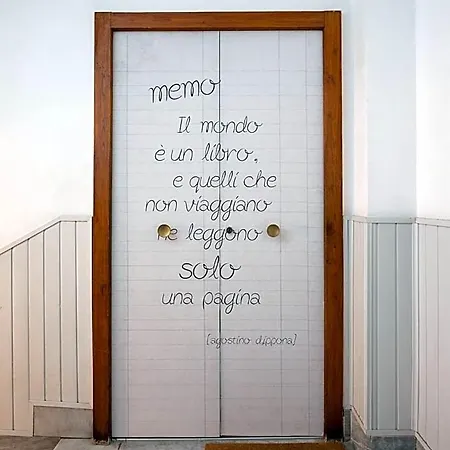 memo
Il mondo
è un libro,
e quelli che
non viaggiano
ne leggono
solo
una pagina
[agostino d'ippona]